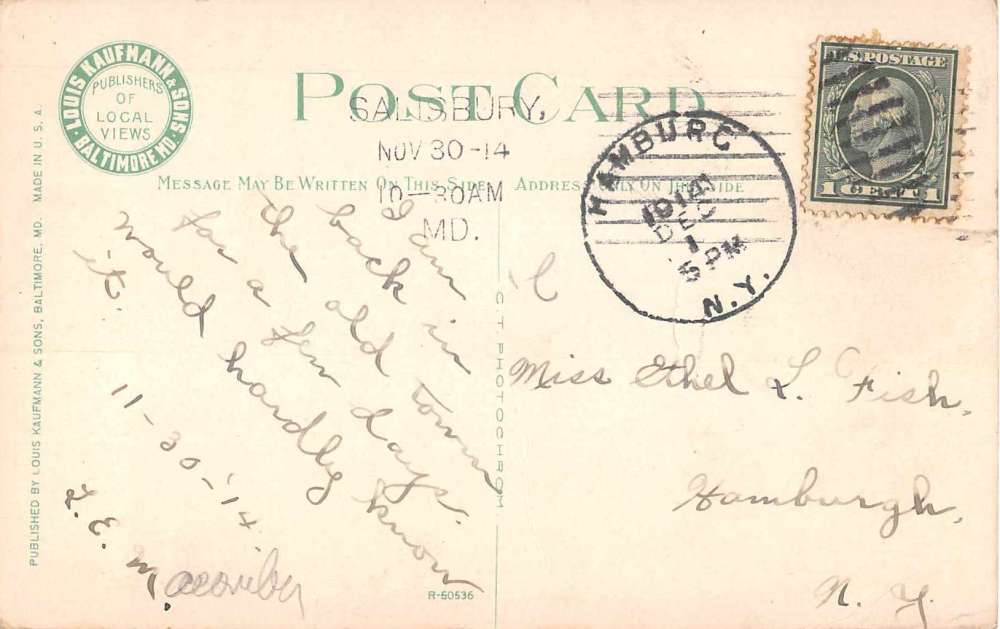 LOUIS KAUFMANN & SONS · BALTIMORE MD. ·
PUBLISHERS
OF
LOCAL
VIEWS
POST CARD
SALISBURY,
NOV 30-14
10-30AM
MD.
HAMBURG
1914
DEC
1
5 PM
N.Y.
U.S. POSTAGE
1 CENT 1
MESSAGE MAY BE WRITTEN ON THIS SIDE
ADDRESS ONLY ON THIS SIDE
I am
back in
the old town
for a few days.
would hardly know
it.
11-30-'14.
L. E. Macomber
Miss Ethel L. Fish,
Hamburgh,
N. Y.
C.T. PHOTOCHROM
R-50536
PUBLISHED BY LOUIS KAUFMANN & SONS, BALTIMORE, MD. MADE IN U. S. A.